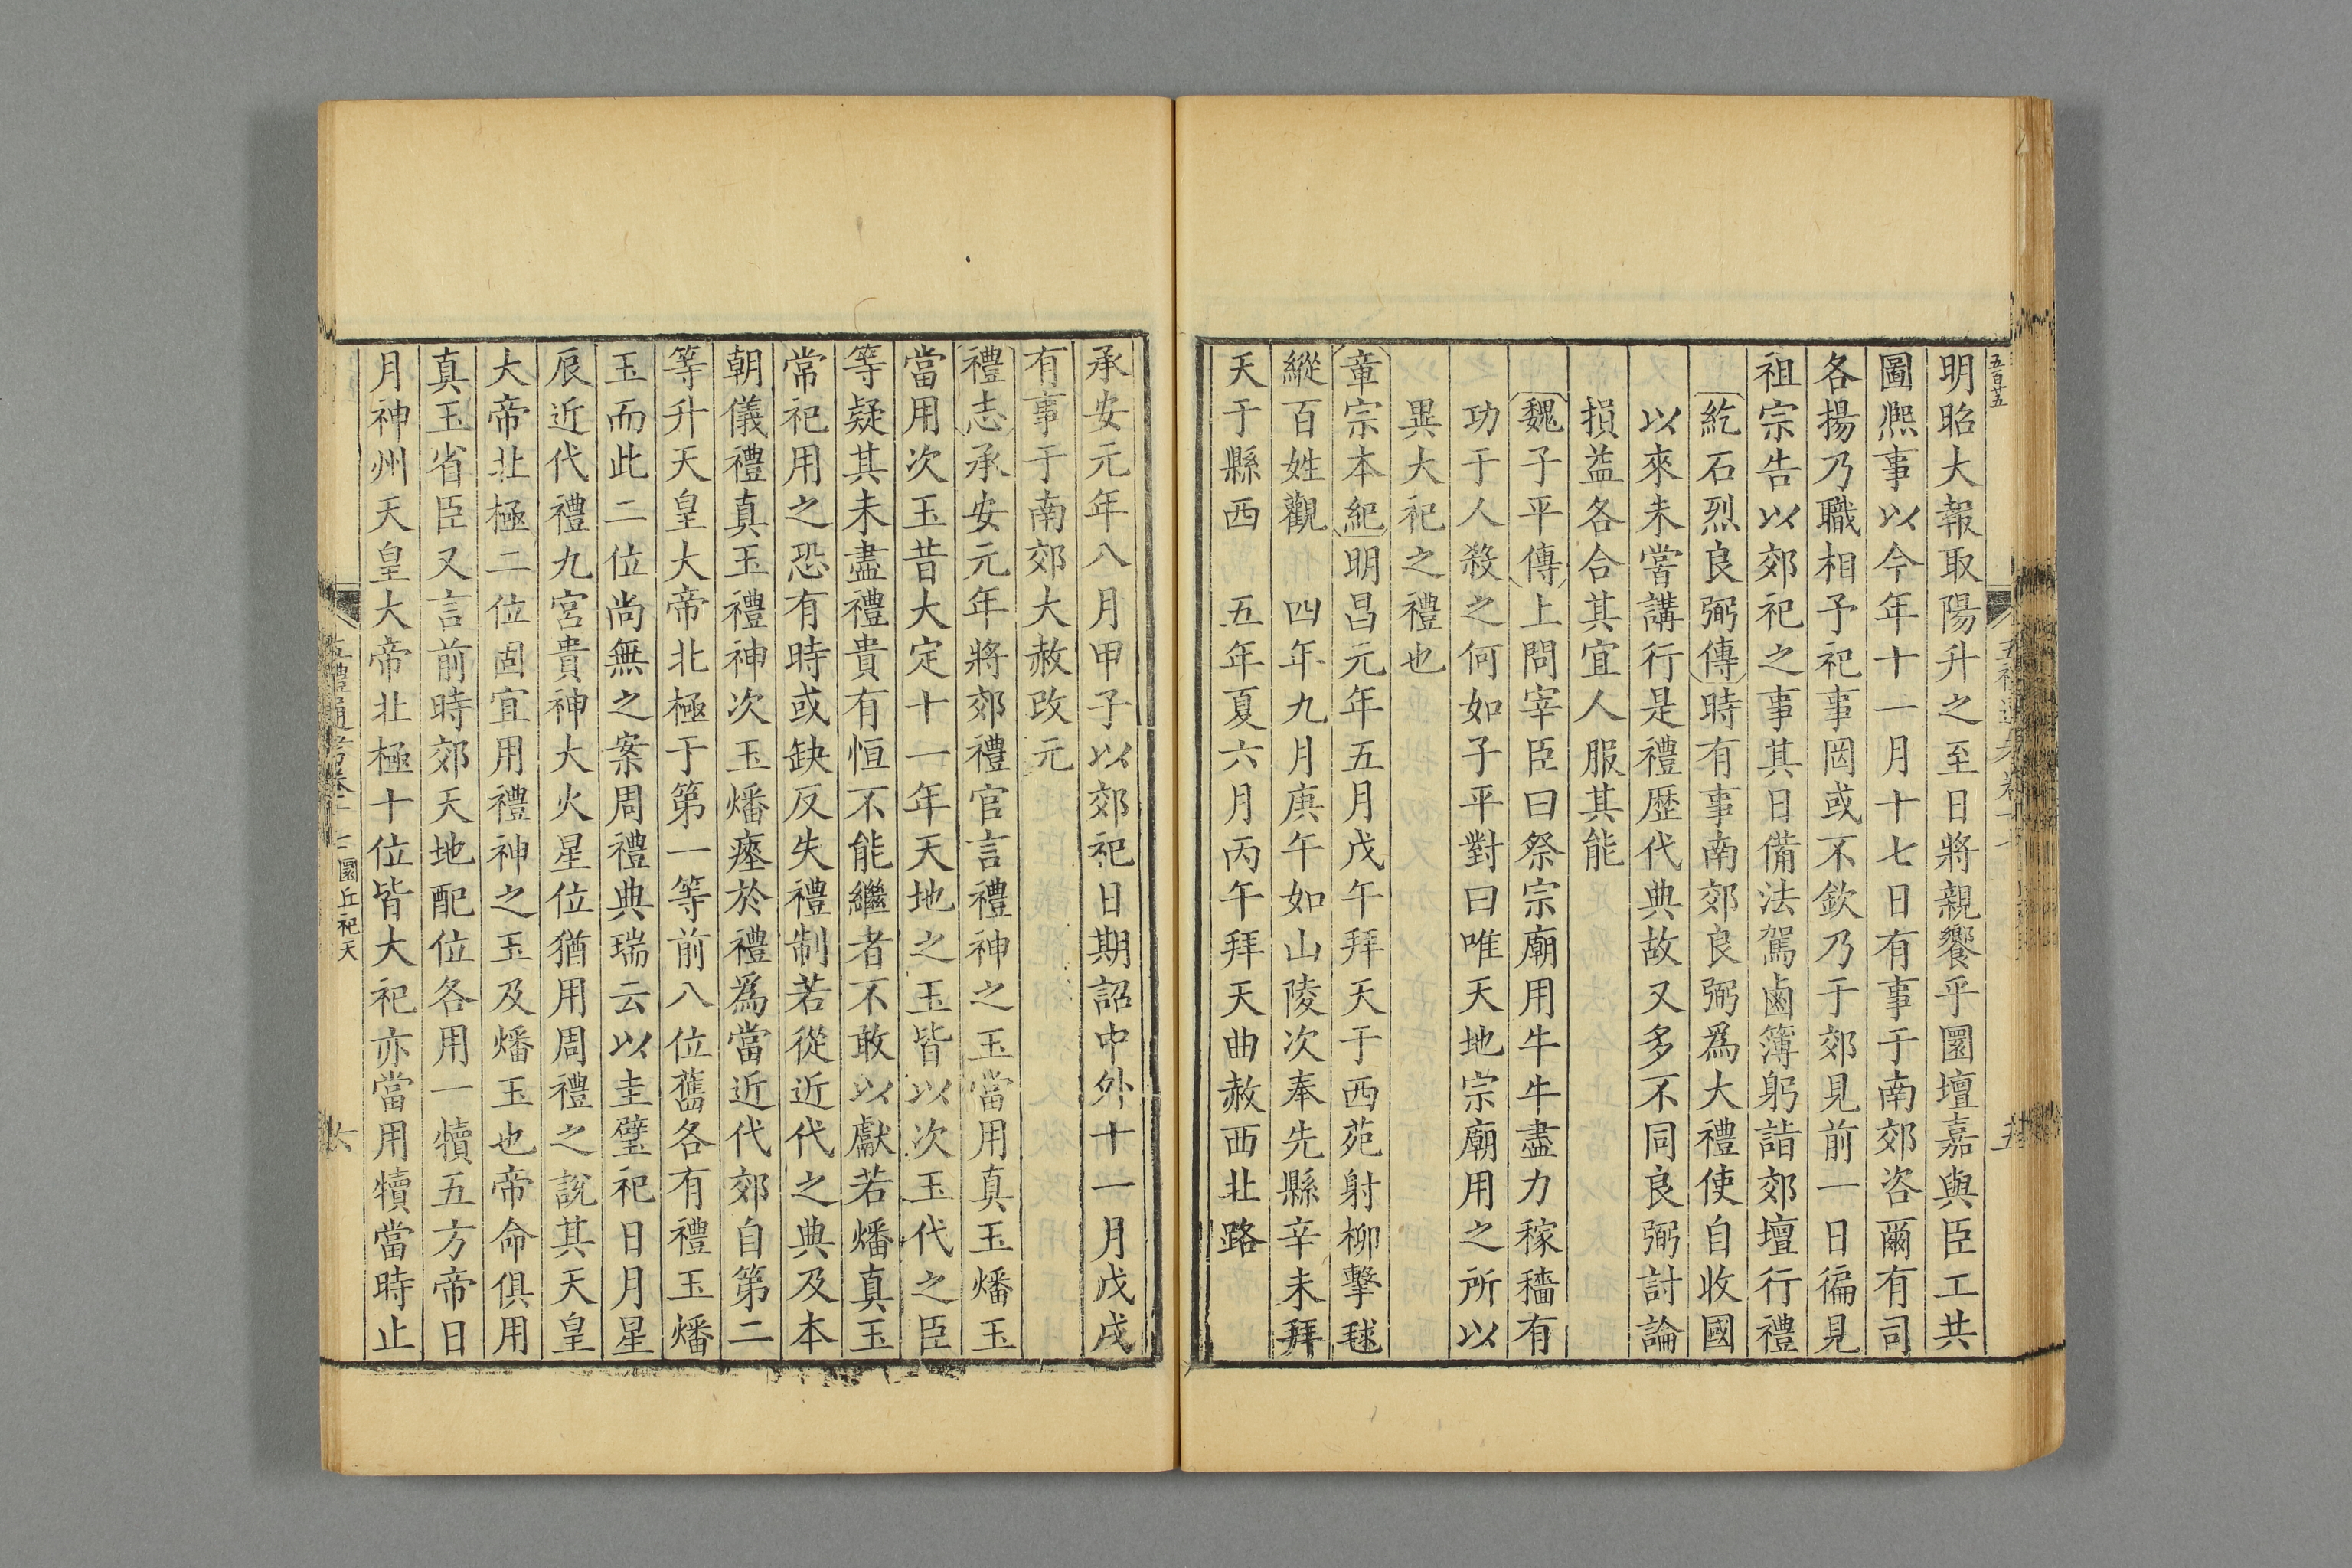 五百廿五
明昭大報取陽升之至日將親饗乎圜壇嘉與臣工共
圖熈事以今年十一月十七日有事于南郊咨爾有司
各揚乃職相予祀事罔或不欽乃于郊見前一日徧見
祖宗告以郊祀之事其日備法駕鹵簿躬詣郊壇行禮
紇石烈良弼傳時有事南郊良弼爲大禮使自收國
以來未嘗講行是禮歷代典故又多不同良弼討論
損益各合其宜人服其能
魏子平傳上問宰臣曰祭宗廟用牛牛盡力稼穡有
功于人殺之何如子平對曰唯天地宗廟用之所以
異大祀之禮也
章宗本紀明昌元年五月戊午拜天于西苑射柳擊毬
縱百姓觀 四年九月庚午如山陵次奉先縣辛未拜
天于縣西 五年夏六月丙午拜天曲赦西北路
承安元年八月甲子以郊祀日期詔中外十一月戊戌
有事于南郊大赦改元
禮志承安元年將郊禮官言禮神之玉當用真玉燔玉
當用次玉昔大定十一年天地之玉皆以次玉代之臣
等疑其未盡禮貴有恒不能繼者不敢以獻若燔真玉
常祀用之恐有時或缺反失禮制若從近代之典及本
朝儀禮真玉禮神次玉燔瘞於禮爲當近代郊自第二
等升天皇大帝北極于第一等前八位舊各有禮玉燔
玉而此二位尚無之案周禮典瑞云以圭璧祀日月星
辰近代禮九宮貴神大火星位猶用周禮之說其天皇
大帝北極二位固宜用禮神之玉及燔玉也帝命俱用
真玉省臣又言前時郊天地配位各用一犢五方帝日
月神州天皇大帝北極十位皆大祀亦當用犢當時止
圜丘祀天